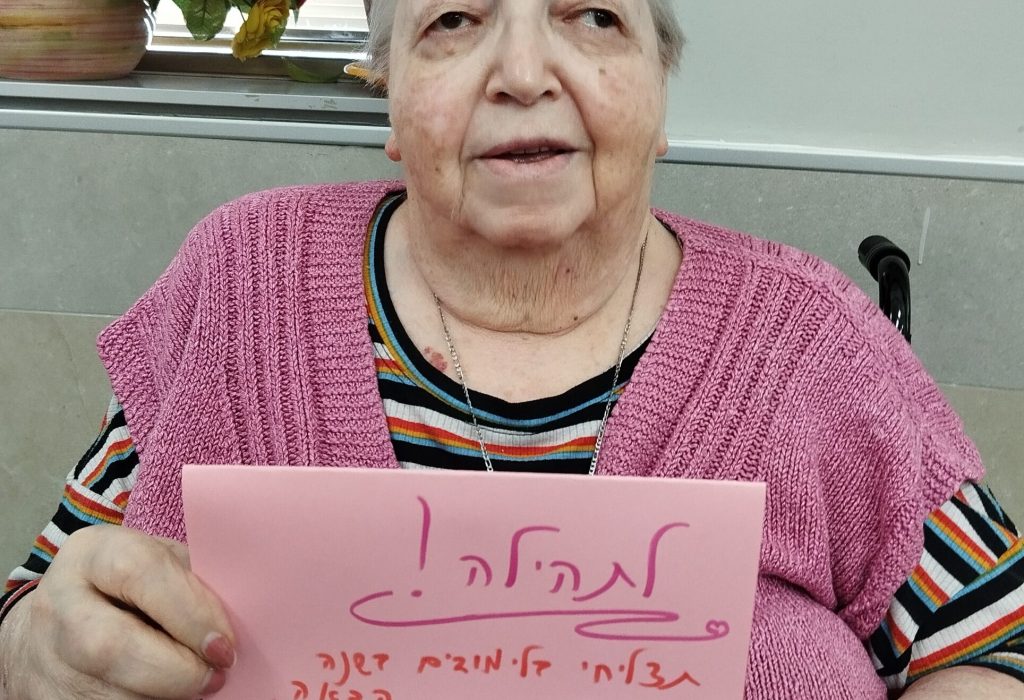 לתהילה!
תצליחי בלימודים בשנה
הבאה